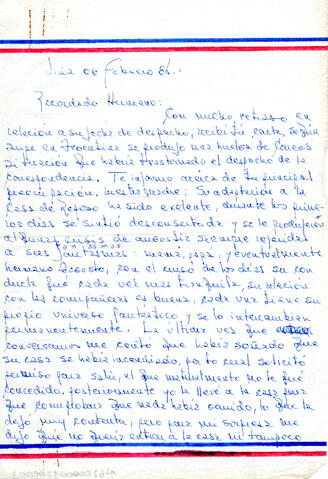 Viña 08 Febrero 86.-
Recordado Hermano:
Con mucho retraso en
relación a su fecha de despacho, recibí tu carta, según
supe en Frontier se produjo una huelga de
situación que había trastornado el despacho de la
correspondencia. Te informo acerca de tu principal
preocupación, nuestra madre: Su adaptación a la
Casa de Reposo ha sido exelente, durante los prime-
ros días se sintió desconcertada y se le producían
algunas crisis de angustia siempre referidas
a sus fantasmas: mamá, papá, y eventualmente
hermano Augusto, con el curso de los días su con
ducta fue cada vez más tranquila, su relación
con las compañeras es buena, cada una tiene su
propio universo fantástico, y se lo intercambian
permanentemente. La última vez que
conversamos me contó que había soñado que
su casa se había incendiado, por lo cual solicitó
permiso para salir, el que naturalmente no le fue
concedido, posteriormente yo la llevé a la casa para
que comprobara que nada había ocurrido, lo que la
dejó muy contenta, pero para mi sorpresa me
dijo que no quería entrar a la casa ni tampoco